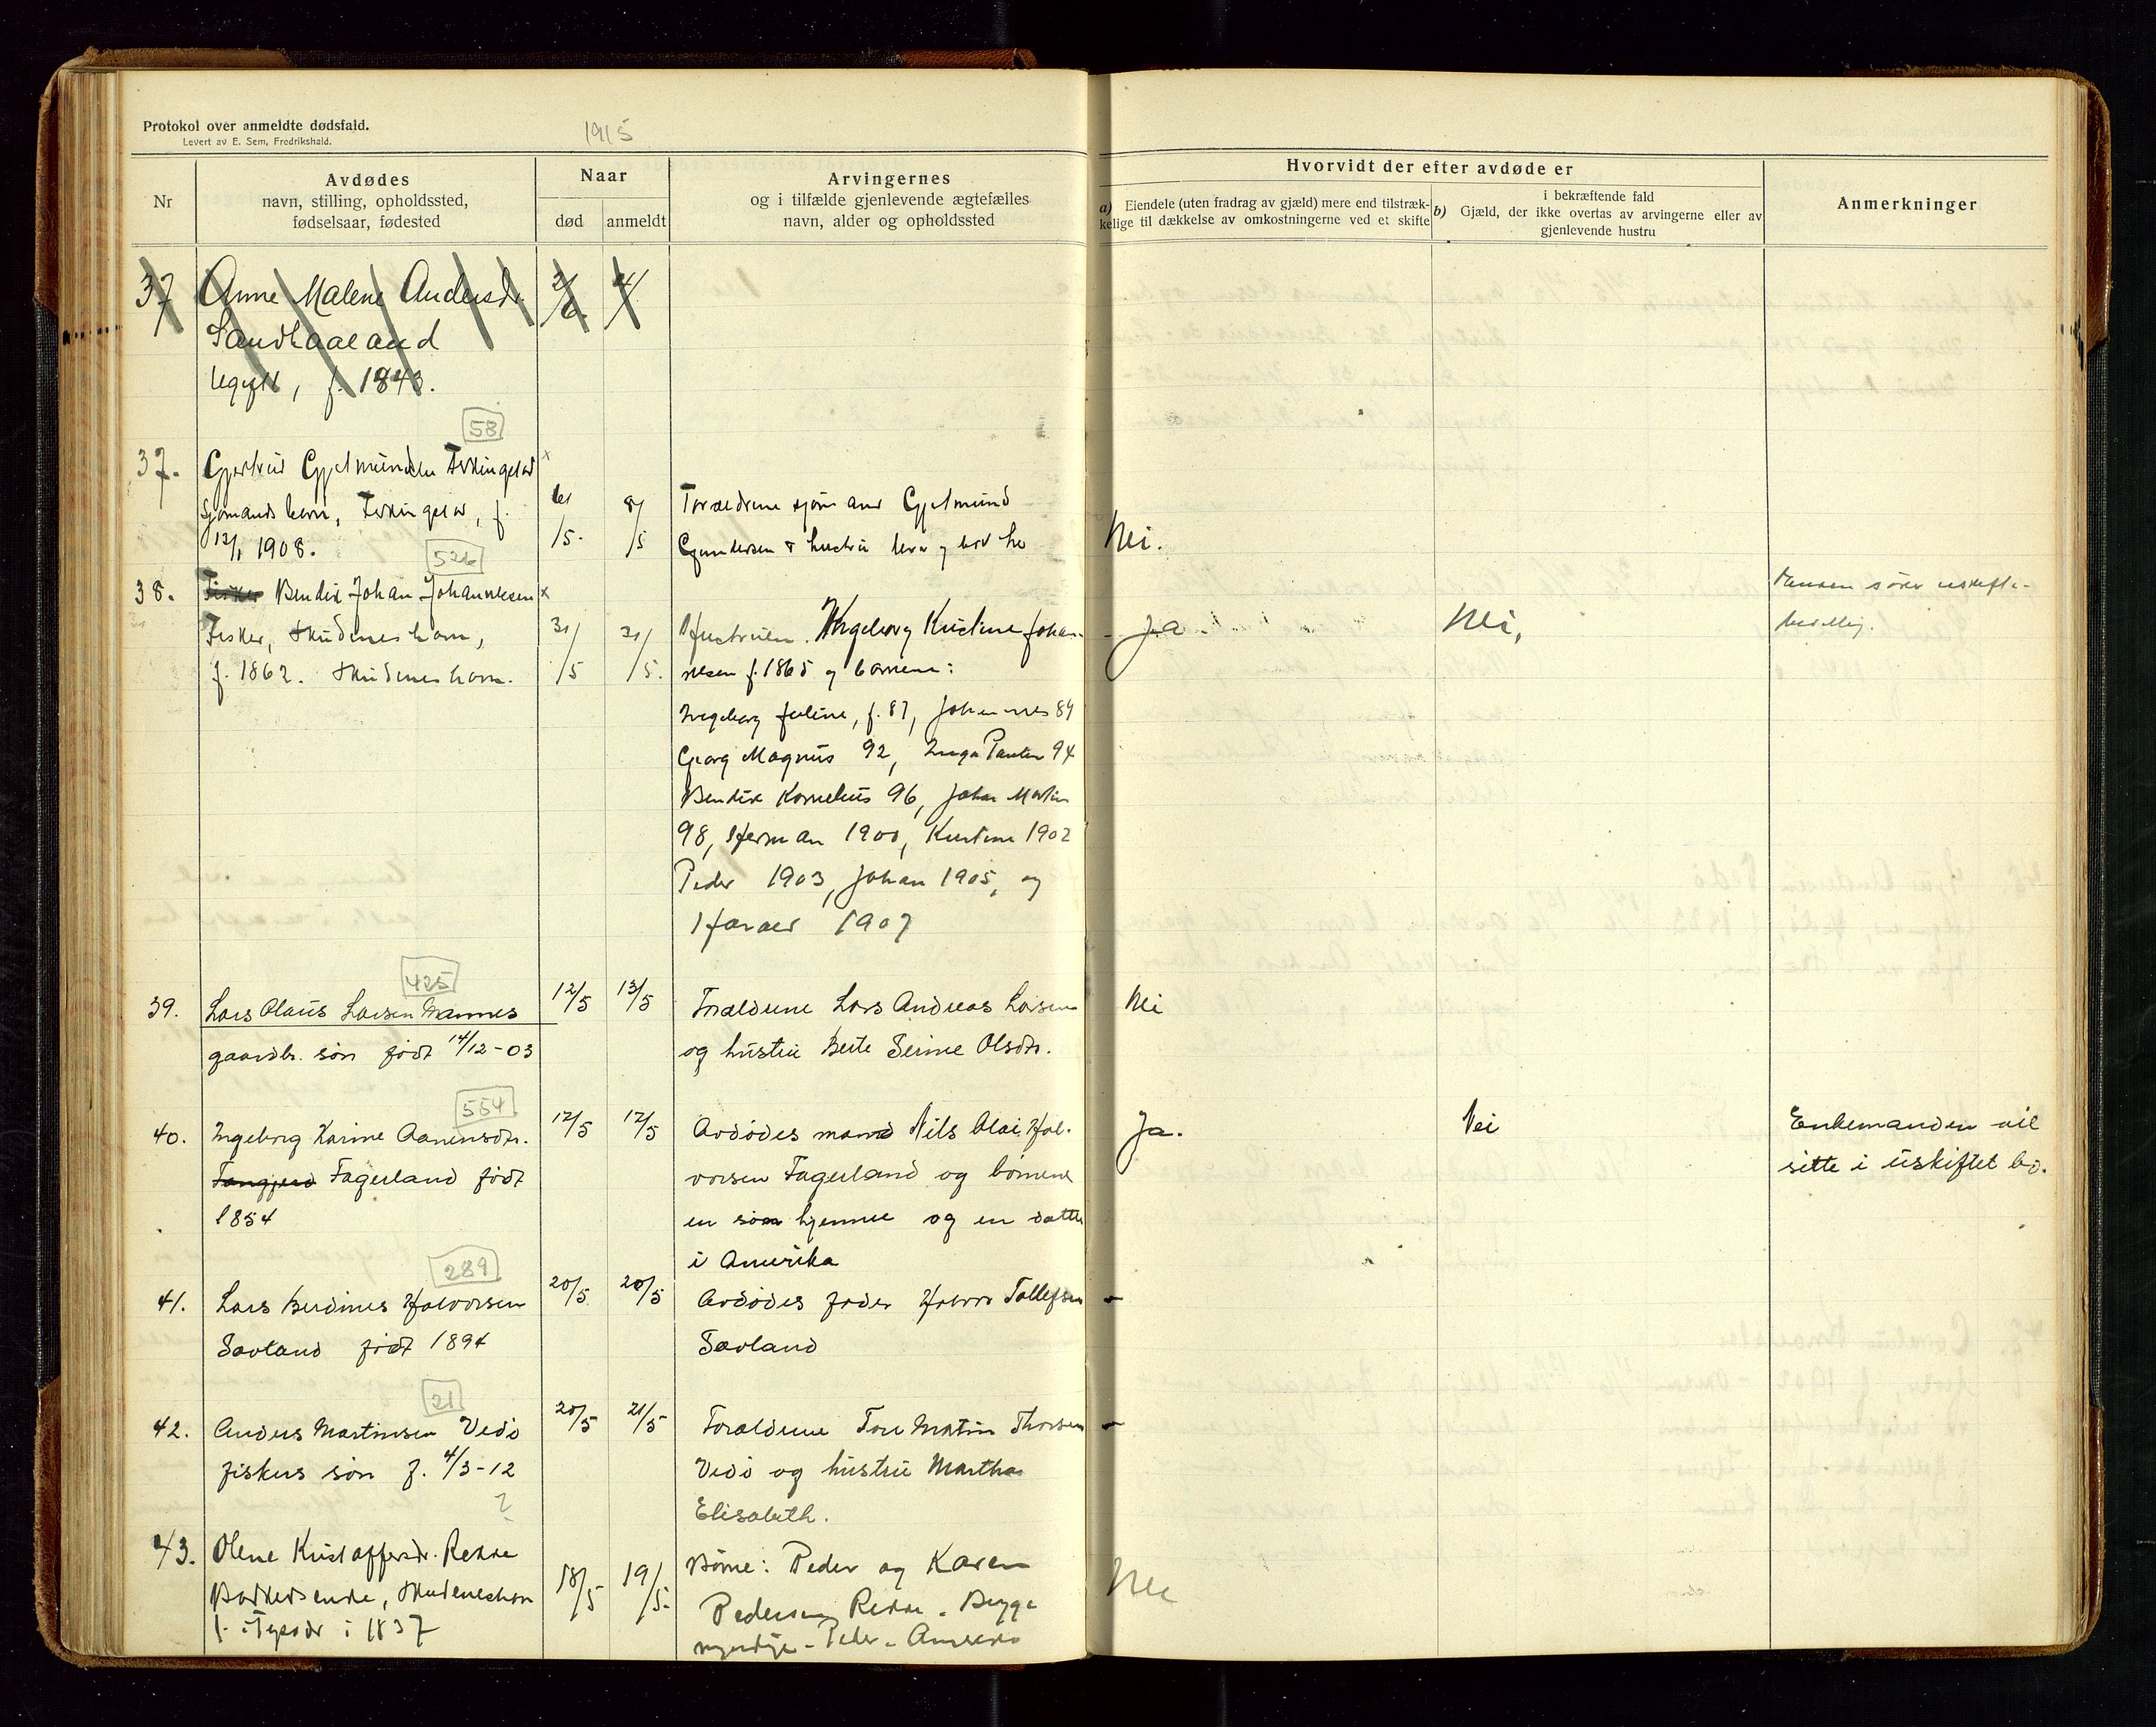 Protokol over anmeldte dødsfald.
Levert av E. Sem, Fredrikshald.
1915
Nr
Avdødes
navn, stilling, opholdssted,
fødselsaar, fødested
Naar
død
anmeldt
Arvingernes
og i tilfælde gjenlevende ægtefælles
navn, alder og opholdssted
Hvorvidt der efter avdøde er
a) Eiendele (uten fradrag av gjæld) mere end tilstræk-
kelige til dækkelse av omkostningerne ved et skifte
i bekræftende fald
b) Gjæld, der ikke overtas av arvingerne eller av
gjenlevende hustru
Anmerkninger
37 Anne Malene Andersdr.
Sandhaaland
Ugift, f. 1843.
58
37.
Sjømands barn, f.
12/1 1908.
8/5
Forældrene sjømand Gjelmund
Gundersen & hustru
Nei.
526
38. Fisker Bendix Johan Johannesen x
Fisker, Skudeneshavn,
f. 1862. Skudeneshavn.
31/5
31/5.
Hustruen. Ingeborg Kristine Johan-
nesen f. 1865 og børnene:
Ingeborg Juline, f. 87, Johannes 89
Georg Magnus 92, Inga 94
Bendix Kornelius 96, Johan Martin
98, Herman 1900, Kristine 1902
Peder 1903, Johan 1905, og
1907
Ja
Nei,
425
39. Lars Olaus Larsen Mannes
gaardbr. søn født 14/12-03
12/5 13/5
Forældrene Lars Andreas Larsen
og hustru Berte Serine Olsdtr.
Nei
554
40. Ingeborg Karine Aanensdtr.
Fagerland født
1854
12/5 12/5
Avdødes mand Nils Olai Hal-
vorsen Fagerland og børnene
en søn hjemme og en datter
i Amerika
Ja.
Nei
Enkemanden vil
sitte i uskiftet bo.
289
41. Lars Berdines Halvorsen
Sævland født 1894
20/5 20/5
Avdødes fader Halvor Tollefsen
Sævland
-
21
42. Anders Martinsen Vedø
fiskers søn f. 4/3-12
20/5 21/5
Forældrene Tore Martin Thorsen
Vedø og hustru Martha
Elisabeth.
-
?
43. Olene Kristoffersdr. Rekke
Skudeneshavn
f. i Tysvær i 1837
18/5 19/5.
Børne: Peder og Karen
Pedersen Rekke. Begge
myndige - Peder - Amerika
Nei